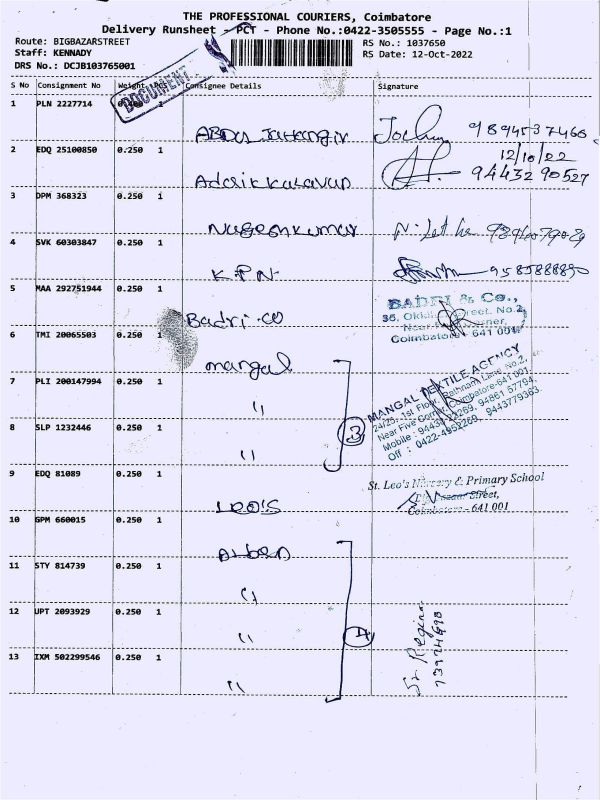 THE PROFESSIONAL COURIERS, Coimbatore
Delivery Runsheet - PCT - Phone No.:0422-3505555 - Page No.:1
Route: BIGBAZARSTREET
Staff: KENNADY
DRS No.: DCJB103765001
RS No.: 1037650
RS Date: 12-Oct-2022
DOCUMENT
S No Consignment No Weight Consignee Details Signature
1 PLN 2227714
9894537460
12/10/22
2 EDQ 25100850 0.250 1
9443290527
3 DPM 368323 0.250 1
Nageshkumar
4 SVK 60303847 0.250 1
K.P.N.
9585888890
5 MAA 292751944 0.250 1
Badri.co
BADRI & Co.,
Coimbatore 641 001
6 TMI 20065503 0.250 1
mangal
MANGAL TEXTILE AGENCY
24/25, 1st Floor, Rathnam Lane No.2,
Near Five Corner, Coimbatore-641 001.
Mobile : 94433 94861 57794,
Off : 0422-4952269, 9443779363.
7 PLI 200147994 0.250 1
"
8 SLP 1232446 0.250 1
"
3
9 EDQ 81089 0.250 1
LEO'S
St. Leo's Nursery & Primary School
Street,
Coimbatore - 641 001
10 GPM 660015 0.250 1
11 STY 814739 0.250 1
"
12 UPT 2093929 0.250 1
"
4
Sr Regina
13 IXM 502299546 0.250 1
"